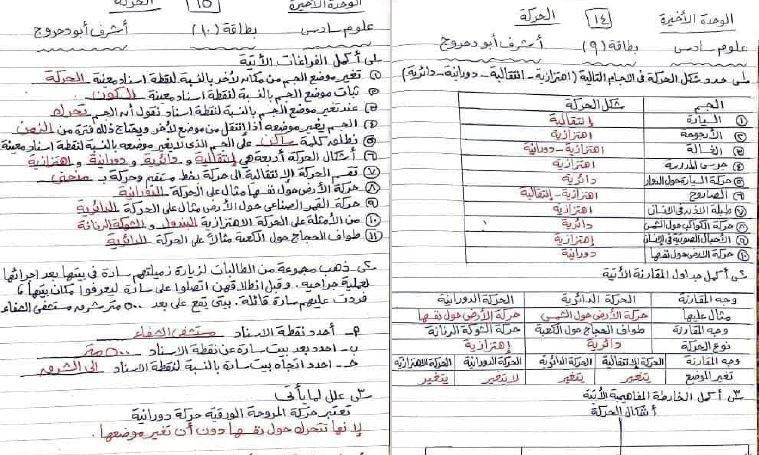 الوحدة الأخيرة
١٤
الحركة
علوم سادس
بطاقة (٩)
أشرف أبو دحروج
س١ حدد شكل الحركة في الاجسام التالية (اهتزازية - انتقالية - دورانية - دائرية)
الجسم
شكل الحركة
① السيارة
إنتقالية
② الأرجوحة
اهتزازية
③ الغسالة
اهتزازية - دورانية
④ جرس المدرسة
اهتزازية
⑤ حركة السيارة حول الدوار
دائرية
⑥ الصاروخ
اهتزازية - إنتقالية
⑦ طبلة الأذن في الإنسان
اهتزازية
⑧ حركة الكواكب حول الشمس
دائرية
⑨ الأحبال الصوتية في الإنسان
إهتزازية
⑩ حركة الارض حول نفسها
دورانية
س٢ أكمل جداول المقارنة الآتية
وجه المقارنة
الحركة الدائرية
الحركة الدورانية
مثال عليها
حركة الأرض حول الشمس
حركة الأرض حول نفسها
وجه المقارنة
طواف الحجاج حول الكعبة
حركة الشوكة الرنانة
نوع الحركة
دائرية
إهتزازية
وجه المقارنة
الحركة الإنتقالية
الحركة الدائرية
الحركة الدورانية
الحركة الاهتزازية
تغير الموضع
يتغير
يتغير
لا يتغير
يتغير
س٣ أكمل الخارطة المفاهيمية الآتية
أشكال الحركة
الوحدة الأخيرة
١٥
الحركة
علوم سادس
بطاقة (١٠)
أشرف أبو دحروج
س١ أكمل الفراغات الآتية
① تغير موضع الجسم من مكان لآخر بالنسبة لنقطة اسناد معينة الحركة
② ثبات موضع الجسم بالنسبة لنقطة اسناد معينة السكون
③ عند تغير موضع الجسم بالنسبة لنقطة اسناد نقول أن الجسم تحرك
④ الجسم يغير موضعه اذا انتقل من موضع لآخر ويحتاج ذلك فترة من الزمن
⑤ نطلق كلمة ساكن على الجسم الذي لا يغير موضعه بالنسبة لنقطة اسناد معينة
⑥ أشكال الحركة أربعة هي إنتقالية و دائرية و دورانية و اهتزازية
⑦ تقسم الحركة الإنتقالية الى حركة بخط مستقيم وحركة بـ منحنى
⑧ حركة الأرض حول نفسها مثال على الحركة الدورانية
⑨ حركة القمر الصناعي حول الأرض مثال على الحركة الدائرية
⑩ من الأمثلة على الحركة الاهتزازية البندول و الشوكة الرنانة
⑪ طواف الحجاج حول الكعبة مثال على الحركة الدائرية
س٢ ذهبت مجموعة من الطالبات لزيارة زميلتهم سارة في بيتها بعد اجرائها
لعملية جراحية. وقبل انطلاقهن اتصلوا على سارة ليعرفوا مكان بيتها
فردت عليهم سارة قائلة: بيتي يقع على بعد ٥٠٠ متر شرق مستشفى الشفاء
أ- أحدد نقطة الاسناد مستشفى الشفاء
ب- احدد بعد بيت سارة عن نقطة الاسناد ٥٠٠ متر
ج- احدد اتجاه بيت سارة بالنسبة لنقطة الاسناد الى الشرق
س٣ علل لما يأتي
تعتبر حركة المروحة الورقية حركة دورانية
لأنها تتحرك حول نفسها دون أن تغير موضعها.